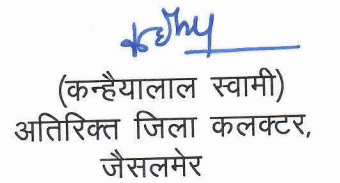 (कन्हैयालाल स्वामी)
अतिरिक्त जिला कलक्टर,
जैसलमेर